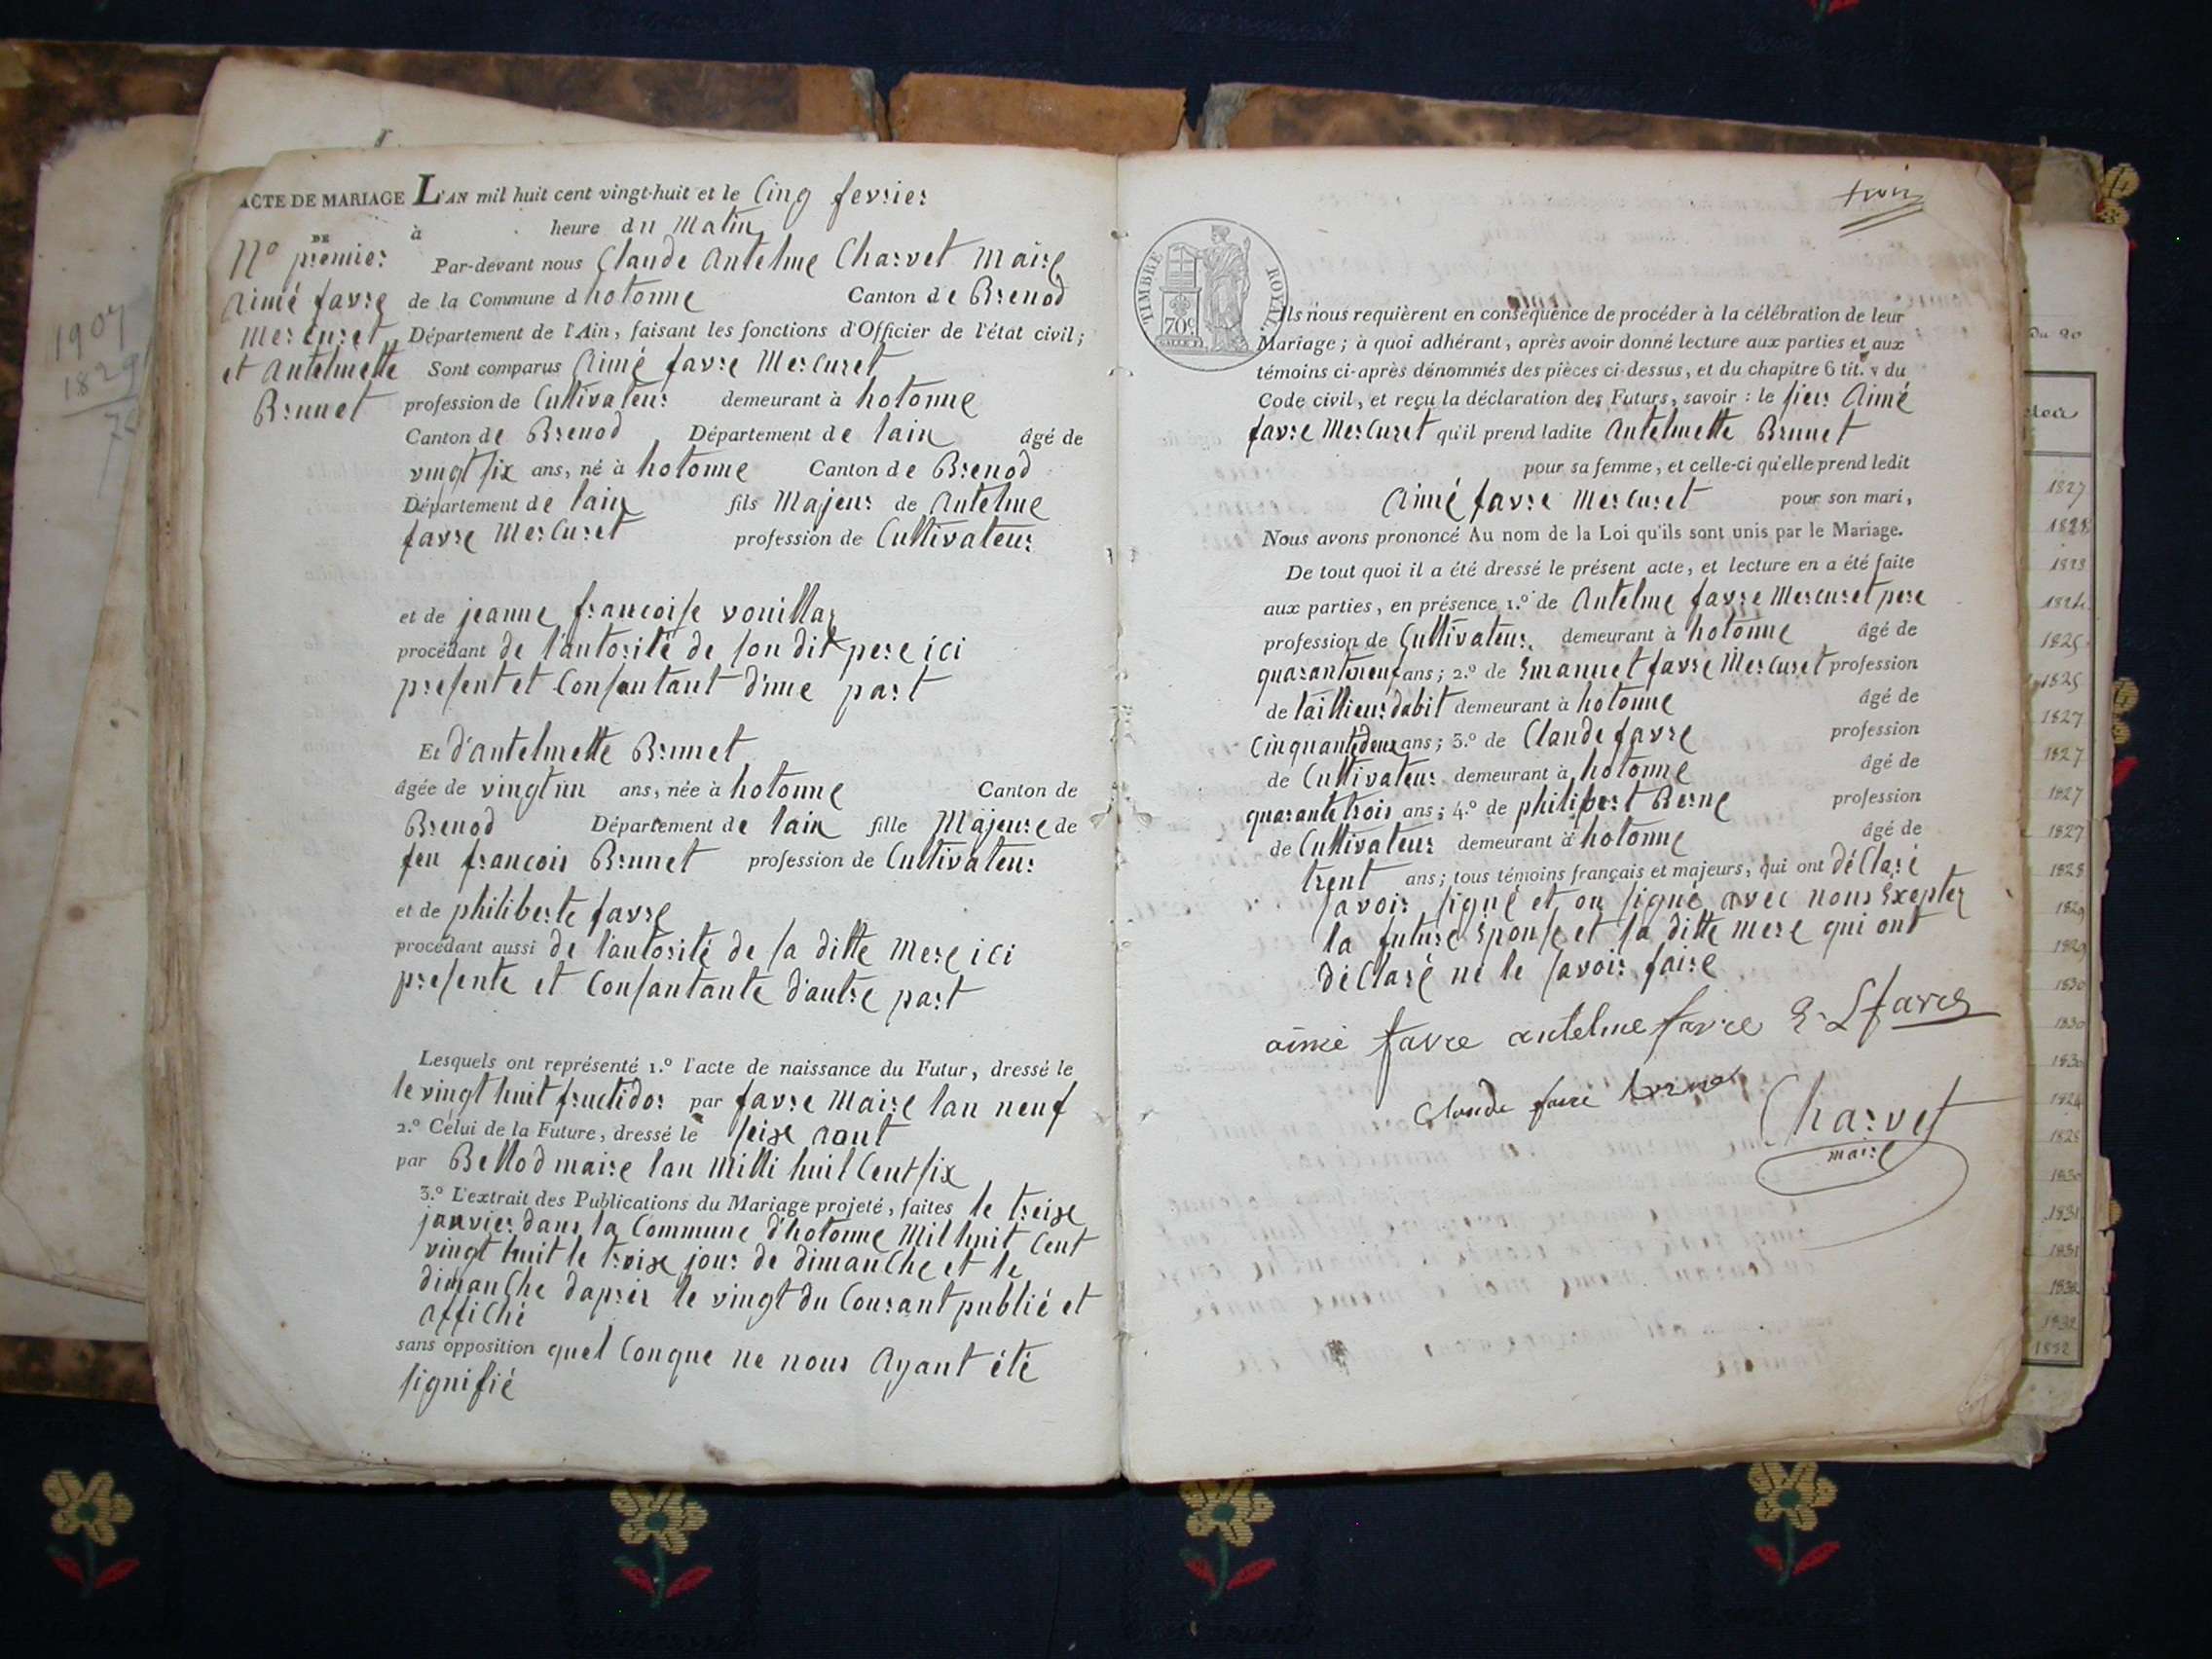 1907
1829
ACTE DE MARIAGE
DE
N.o premier
Aimé favre
Mercuret
et Antelmette
Brunet
L'AN mil huit cent vingt-huit et le Cinq fevrier
à heure du Matin
Par-devant nous Claude Antelme Charvet Maire
de la Commune d hotonne Canton de Brenod
Département de l'Ain, faisant les fonctions d'Officier de l'état civil;
Sont comparus Aimé favre Mercuret
profession de Cultivateur demeurant à hotonne
Canton de Brenod Département de lain âgé de
vingt six ans, né à hotonne Canton de Brenod
Département de lain fils Majeur de Antelme
favre Mercuret profession de Cultivateur
et de jeanne francoise vouillaz
procédant de l'autorité de son dit pere ici
present et Consantant d'une part
Et d'antelmette Brunet
âgée de vingt un ans, née à hotonne Canton de
Brenod Département de lain fille Majeure de
feu francois Brunet profession de Cultivateur
et de philiberte favre
procédant aussi de l'autorité de sa ditte Mere ici
presente et Consantante d'autre part
Lesquels ont représenté 1.º l'acte de naissance du Futur, dressé le
le vingt huit fructidor par favre Maire lan neuf
2.º Celui de la Future, dressé le seise aout
par Bellod maire lan Milli huit Cent six
3.º L'extrait des Publications du Mariage projeté, faites le treise
janvier dans la Commune d'hotonne Mil huit Cent
vingt huit le treise jour de dimanche et le
dimanche dapres le vingt du Courant publié et
affiché
sans opposition quel Conque ne nous Ayant été
signifié
trois
TIMBRE ROYAL
70c
Ils nous requièrent en conséquence de procéder à la célébration de leur
Mariage; à quoi adhérant, après avoir donné lecture aux parties et aux
témoins ci-après dénommés des pièces ci-dessus, et du chapitre 6 tit. v du
Code civil, et reçu la déclaration des Futurs, savoir: le sieur Aimé
favre Mercuret qu'il prend ladite Antelmette Brunet
pour sa femme, et celle-ci qu'elle prend ledit
Aimé favre Mercuret pour son mari,
Nous avons prononcé Au nom de la Loi qu'ils sont unis par le Mariage.
De tout quoi il a été dressé le présent acte, et lecture en a été faite
aux parties, en présence 1.º de Antelme favre Mercuret pere
profession de Cultivateur demeurant à hotonne âgé de
quarantneuf ans; 2.º de Emanuet favre Mercuret profession
de taillieur dabit demeurant à hotonne âgé de
Cinquantedeux ans; 3.º de Claude favre profession
de Cultivateur demeurant à hotonne âgé de
quarante trois ans; 4.º de philibert Berne profession
de Cultivateur demeurant à hotonne âgé de
trent ans; tous témoins français et majeurs, qui ont déClaré
savoir signé et on signé avec nous Exepter
la future Epouse et sa ditte mere qui ont
déClaré ne le savoir faire
aimé favre antelme favre E. Lfavre
Claude favre berne
Charvet
maire
du 20
1827
1828
1828
1824
1825
1825
1827
1827
1827
1827
1828
1829
1829
1830
1830
1830
1824
1828
1830
1831
1831
1832
1832
1832